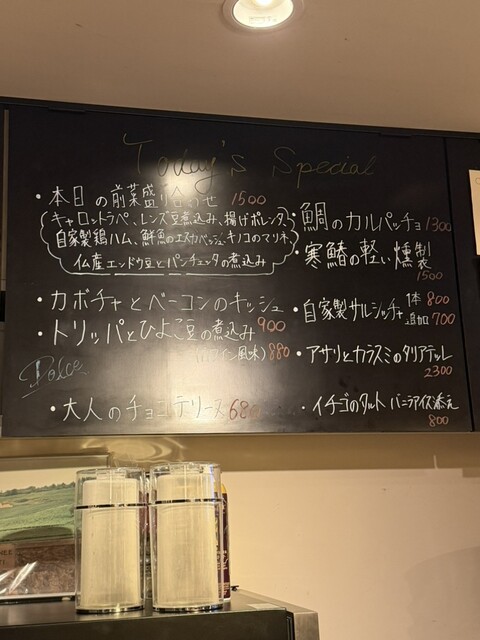 Today's Special
・本日の前菜盛り合わせ 1500
キャロットラペ、レンズ豆煮込み、揚げポレンタ、
自家製鶏ハム、鮮魚のエスカベッシュ、キノコのマリネ、
仏産エンドウ豆とパンチェッタの煮込み
・カボチャとベーコンのキッシュ
900
・トリッパとひよこ豆の煮込み
風味) 880
Dolce
・大人のチョコテリーヌ 680
・鯛のカルパッチョ 1300
・寒鰆の軽い燻製
1500
・自家製サルシッチャ 1本 800
追加 700
・アサリとカラスミのタリアテッレ
2300
・イチゴのタルト バニラアイス添え
800